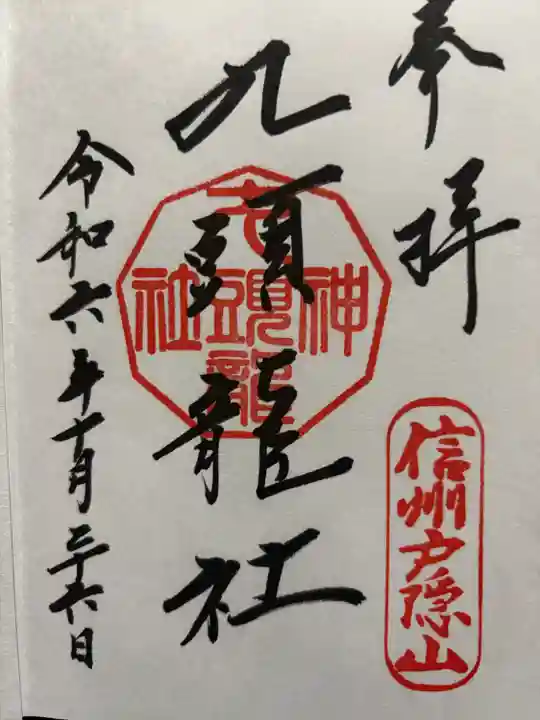 奉拝
信州戸隠山
九頭龍社
九頭龍
神社
令和六年十月二十六日